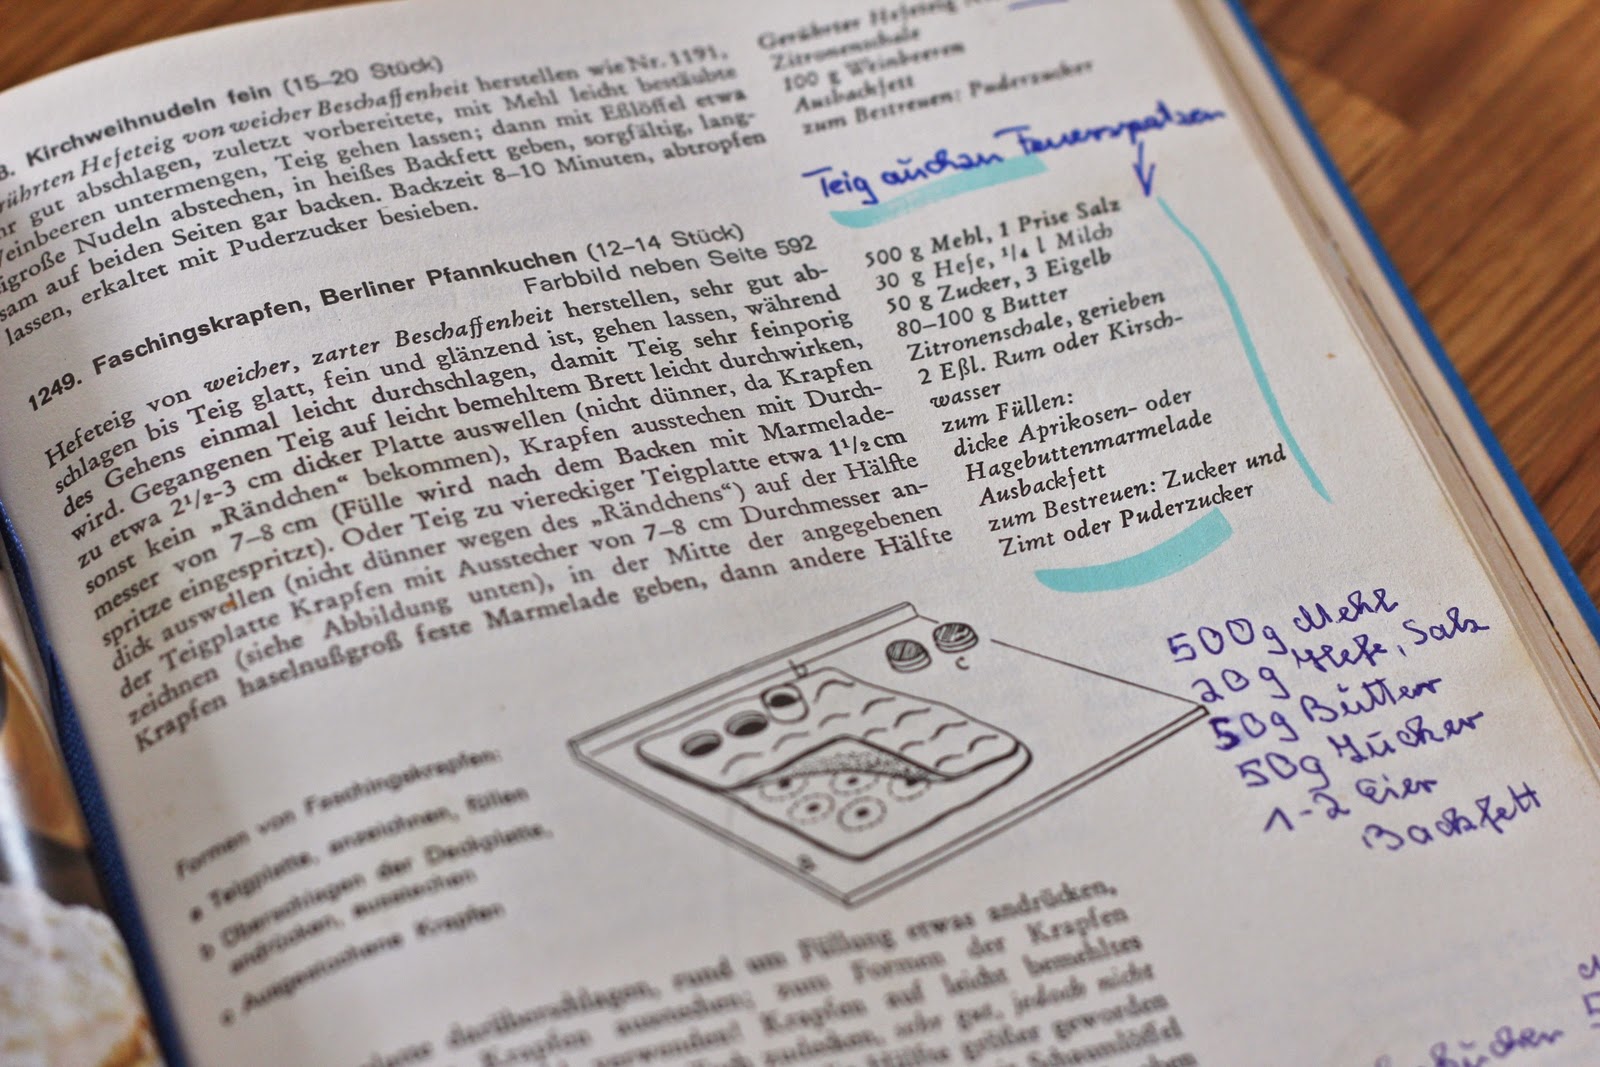 3. Kirchweihnudeln fein (15–20 Stück)
rührten Hefeteig von weicher Beschaffenheit herstellen wie Nr. 1191,
gut abschlagen, zuletzt vorbereitete, mit Mehl leicht bestäubte
einbeeren untermengen, Teig gehen lassen; dann mit Eßlöffel etwa
große Nudeln abstechen, in heißes Backfett geben, sorgfältig, lang-
sam auf beiden Seiten gar backen. Backzeit 8–10 Minuten, abtropfen
lassen, erkaltet mit Puderzucker besieben.
Gerührter Hefeteig
Zitronenschale
100 g Weinbeeren
Ausbackfett
zum Bestreuen: Puderzucker
Teig auch an Feuerspatzen
1249. Faschingskrapfen, Berliner Pfannkuchen (12–14 Stück)
Farbbild neben Seite 592
Hefeteig von weicher, zarter Beschaffenheit herstellen, sehr gut ab-
schlagen bis Teig glatt, fein und glänzend ist, gehen lassen, während
des Gehens einmal leicht durchschlagen, damit Teig sehr feinporig
wird. Gegangenen Teig auf leicht bemehltem Brett leicht durchwirken,
zu etwa 2½–3 cm dicker Platte auswellen (nicht dünner, da Krapfen
sonst kein „Rändchen“ bekommen), Krapfen ausstechen mit Durch-
messer von 7–8 cm (Fülle wird nach dem Backen mit Marmelade-
spritze eingespritzt). Oder Teig zu viereckiger Teigplatte etwa 1½ cm
dick auswellen (nicht dünner wegen des „Rändchens“) auf der Hälfte
der Teigplatte Krapfen mit Ausstecher von 7–8 cm Durchmesser an-
zeichnen (siehe Abbildung unten), in der Mitte der angegebenen
Krapfen haselnußgroß feste Marmelade geben, dann andere Hälfte
500 g Mehl, 1 Prise Salz
30 g Hefe, ¼ l Milch
50 g Zucker, 3 Eigelb
80–100 g Butter
Zitronenschale, gerieben
2 Eßl. Rum oder Kirsch-
wasser
zum Füllen:
dicke Aprikosen- oder
Hagebuttenmarmelade
Ausbackfett
zum Bestreuen: Zucker und
Zimt oder Puderzucker
500g Mehl
20g Hefe, Salz
50g Butter
50g Zucker
1-2 Eier
Backfett
b
c
a
Formen von Faschingskrapfen:
a Teigplatte, anzeichnen, füllen
b Überschlagen der Deckplatte,
andrücken, ausstechen
c Ausgestochene Krapfen
darüberschlagen, rund um Füllung etwas andrücken,
Krapfen ausstechen; zum Formen der Krapfen
verwenden! Krapfen auf leicht bemehltes
zudecken, sehr gut, jedoch nicht
Hälfte größer geworden
Schaumlöffel